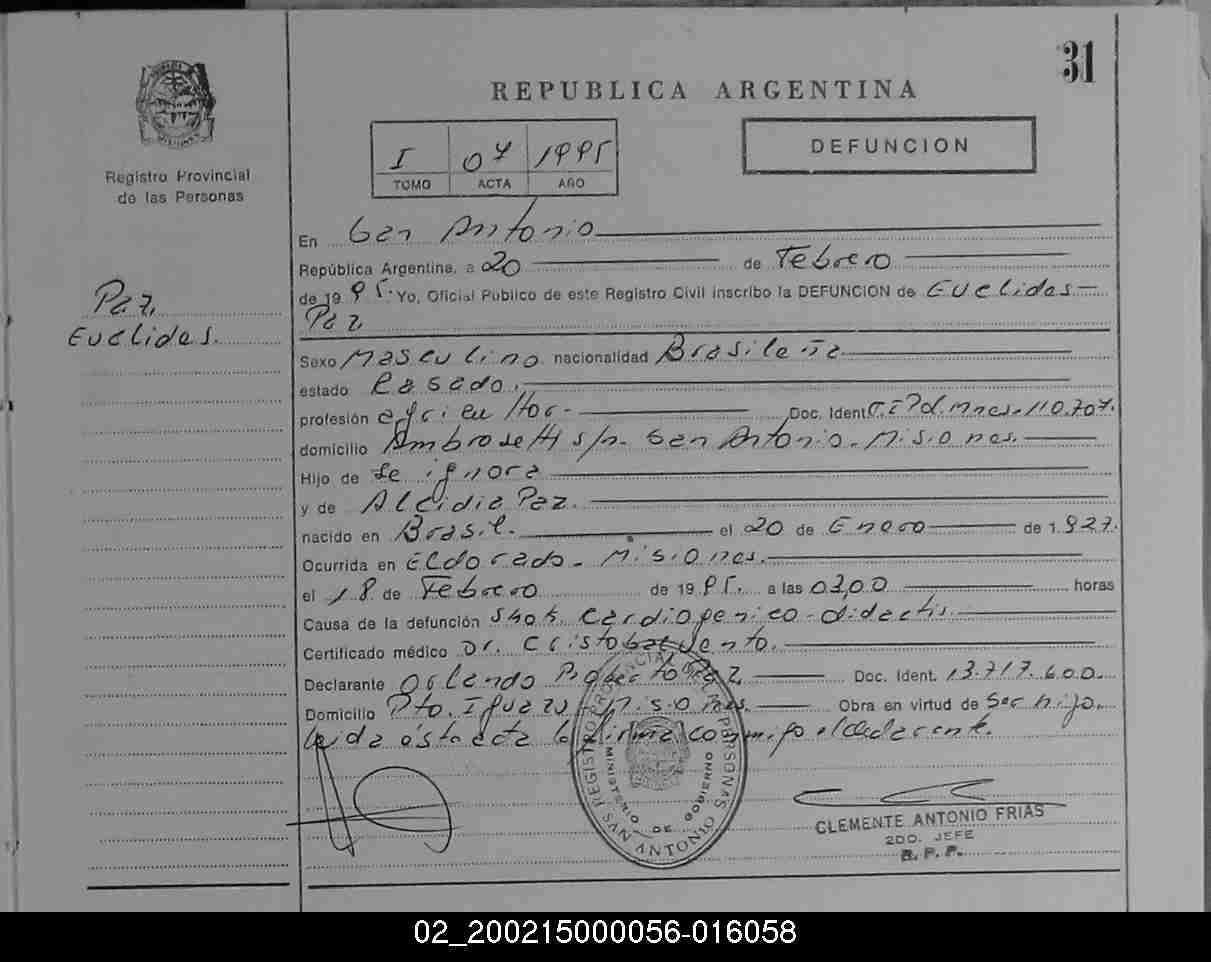 31
REPUBLICA ARGENTINA
I 07 1995
TOMO ACTA AÑO
DEFUNCION
Registro Provincial
de las Personas
Paz,
Euclides.
En San Antonio
República Argentina, a 20 de Febrero
de 19 95. Yo, Oficial Público de este Registro Civil inscribo la DEFUNCION de Euclides
Paz
Sexo Masculino nacionalidad Brasileña
estado Casado.
profesión agricultor- Doc. Ident. Mnes. 110.707.
domicilio Ambrosetti s/n. San Antonio. Misiones.
Hijo de Se ignora
y de Alcidia Paz.
nacido en Brasil. el 20 de Enero de 1.927.
Ocurrida en Eldorado - Misiones.
el 18 de Febrero de 19 95. a las 03,00 horas
Causa de la defunción Shok Cardiogenico-
Certificado médico Dr. Cristobal
Declarante Orlando Roberto Paz Doc. Ident. 13.717.600.
Domicilio Pto. Iguazu - Misiones. Obra en virtud de Ser hijo.
Leida ésta acta la firma conmigo el declarante.
REGISTRO PROVINCIAL DE LAS PERSONAS
MINISTERIO DE GOBIERNO
SAN ANTONIO
CLEMENTE ANTONIO FRIAS
2DO. JEFE
R. P. P.
02_200215000056-016058